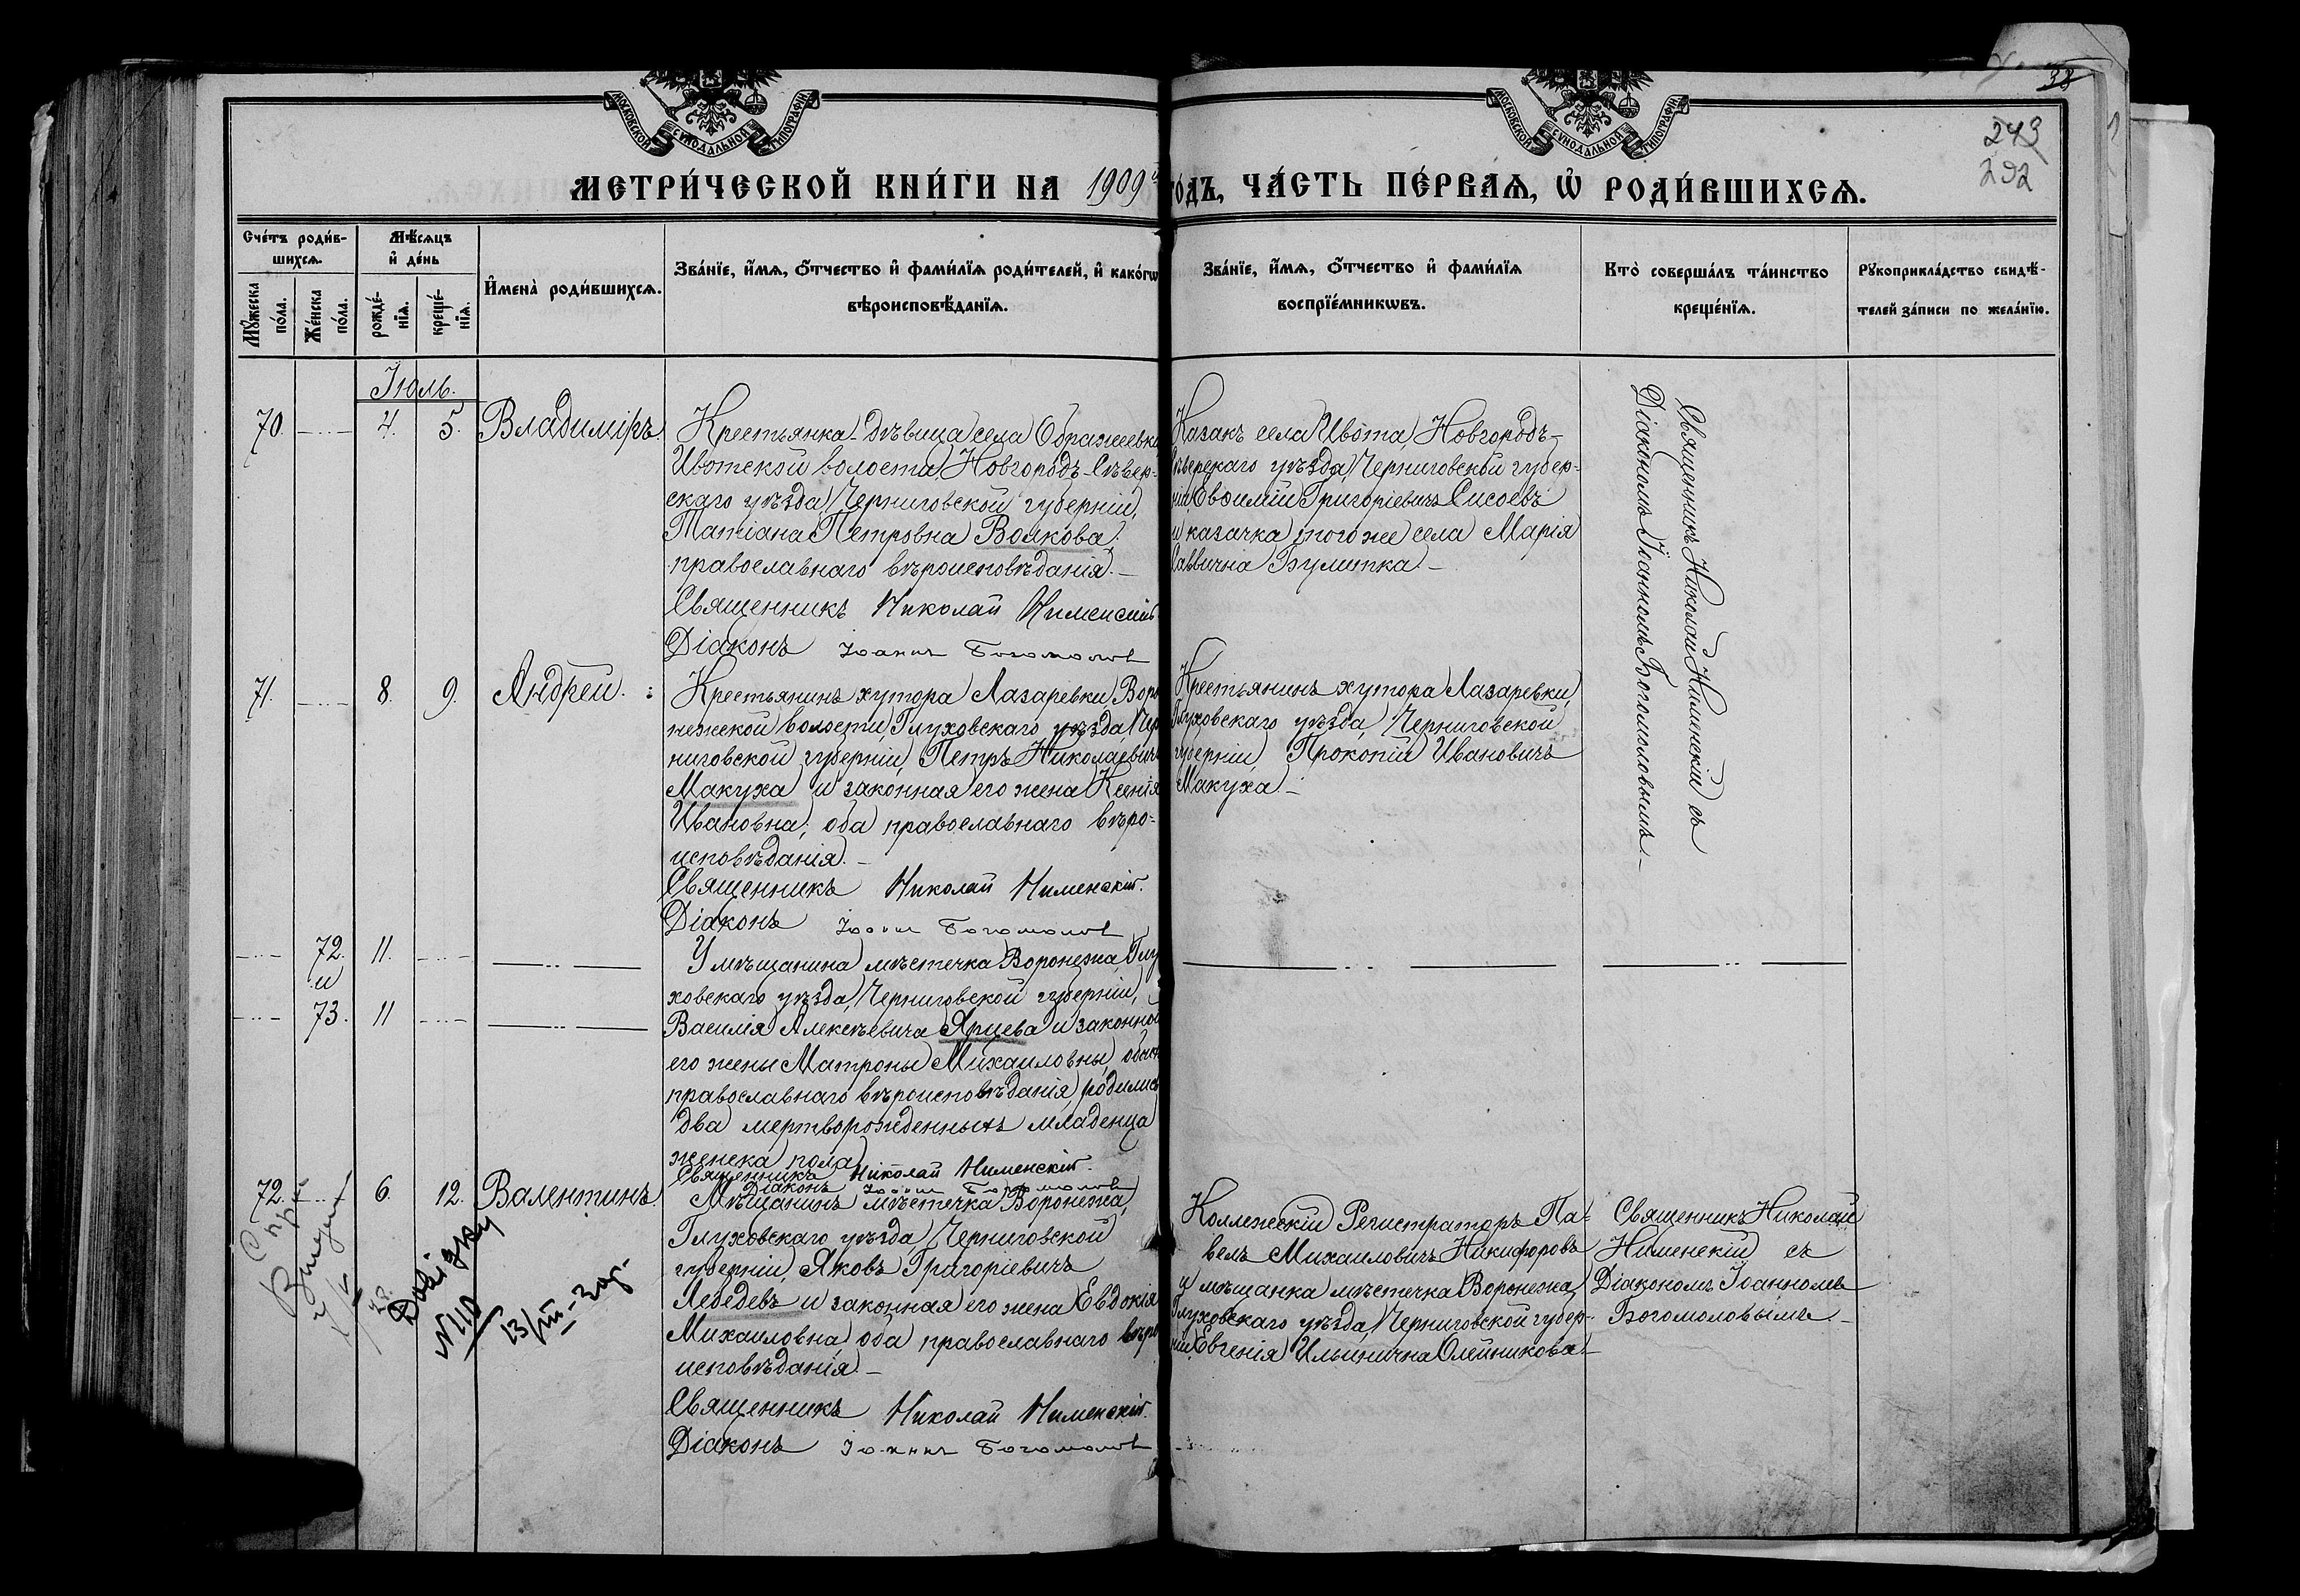 МОСКОВСКОЙ СѴНОДАЛЬНОЙ ТИПОГРАФІИ
МОСКОВСКОЙ СѴНОДАЛЬНОЙ ТИПОГРАФІИ
38
243
292
МЕТРИ́ЧЕСКОЙ КНИ́ГИ НА 1909й
ГО́ДЪ, ЧА́СТЬ ПЕ́РВАѦ, Ѡ РОДИ́ВШИХСѦ.
Сче́тъ роди́в-
шихсѧ.
Мꙋжеска по́ла.
Же́нска по́ла.
Мѣ́сѧцъ и де́нь
рожде́-нїѧ.
креще́-нїѧ.
И҆мена̀ роди́вшихсѧ.
Зва́нїе, и҆́мѧ, ѻ҆́тчество и҆ фами́лїѧ роди́телей, и҆ како́гѡ
вѣроисповѣ́данїѧ.
Зва́нїе, и҆́мѧ, ѻ҆́тчество и҆ фами́лїѧ
воспрїе́мникѡвъ.
Кто̀ соверша́лъ та́инство
креще́нїѧ.
Рꙋкоприкла́дство свидѣ́-
телей за́писи по жела́нїю.
Іюль.
70. 4. 5. Владиміръ.
Крестьянка-дѣвица села Ображеевки
Ивотской волости, Новгородъ-Сѣвер-
скаго уѣзда, Черниговской губерніи,
Татіана Петровна Волкова;
православнаго вѣроисповѣданія.—
Священникъ Николай Нименскій
Діаконъ Іоаннъ Богомолов
Казакъ села Ивота, Новгородъ-
Сѣверскаго уѣзда, Черниговской губер-
ніи Евѳимій Григоріевичъ Сисоевъ
и казачка того же села Марія
Саввична Булитка.—
Священникъ Николай Нименскій съ
Діакономъ Іоанномъ Богомоловымъ.—
71. 8. 9. Андрей.
Крестьянинъ хутора Лазаревки, Воро-
нежской волости, Глуховскаго уѣзда, Чер-
ниговской губерніи, Петръ Николаевичъ
Макуха и законная его жена Ксенія
Ивановна; оба православнаго вѣро-
исповѣданія.—
Священникъ Николай Нименскій.
Діаконъ Іоаннъ Богомолов
Крестьянинъ хутора Лазаревки,
Глуховскаго уѣзда, Черниговской
губерніи, Прокопій Ивановичъ
Макуха.—
72. 11.
и
73. 11
У мѣщанина мѣстечка Воронежа, Глу-
ховскаго уѣзда, Черниговской губерніи,
Василія Алексѣевича Ярцева и законной
его жены Матроны Михаиловны, обоихъ
православнаго вѣроисповѣданія, родились
два мертворожденныхъ младенца
женска пола.
Священникъ Николай Нименскій.
Діаконъ Іоаннъ Богомолов
72. 6. 12. Валентинъ.
Мѣщанинъ мѣстечка Воронежа,
Глуховскаго уѣзда, Черниговской
губерніи, Яковъ Григоріевичъ
Лебедевъ и законная его жена Евдокія
Михаиловна, оба православнаго вѣро-
исповѣданія.—
Священникъ Николай Нименскій.
Діаконъ Іоаннъ Богомолов
Коллежскій Регистраторъ Па-
велъ Михаиловичъ Никифоровъ
и мѣщанка мѣстечка Воронежа,
Глуховскаго уѣзда, Черниговской губер-
ніи, Евгенія Ильинична Олейникова.—
Священникъ Николай
Нименскій съ
Діакономъ Іоанномъ
Богомоловымъ.—
Довідку
№110
13/III-